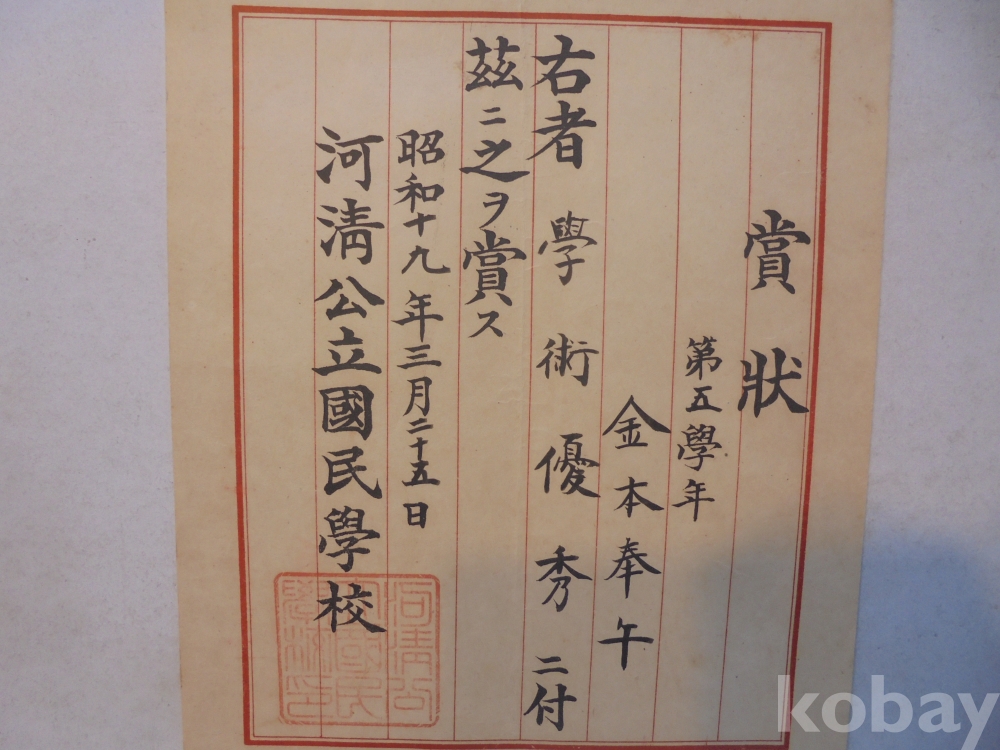 賞狀
第五學年
金本奉午
右者學術優秀ニ付
茲ニ之ヲ賞ス
昭和十九年三月二十五日
河淸公立國民學校
河淸公
立國民
學校印
kobay